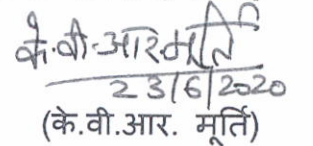 के.वी.आर.मूर्ति
23/6/2020
(के.वी.आर. मूर्ति)